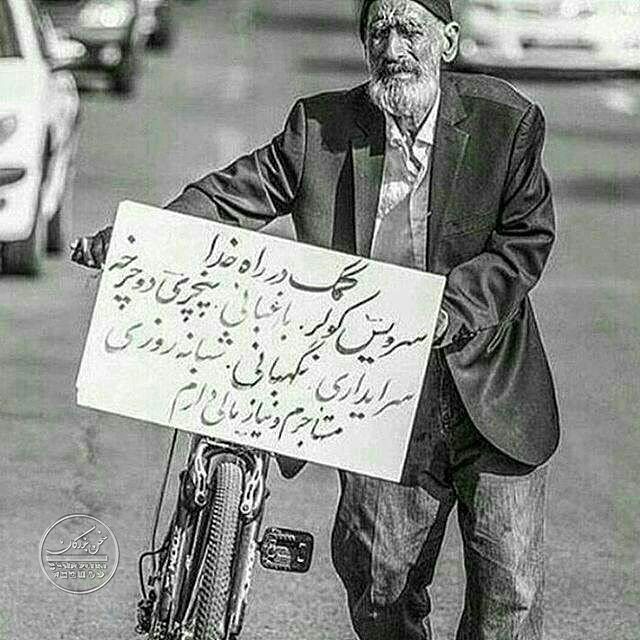 کمک در راه خدا
سرویس کولر. باغبانی. پنچری دوچرخه
سرایداری. نگهبانی. شبانه روزی
مستاجرم و نیاز مالی دارم
سخن بزرگان